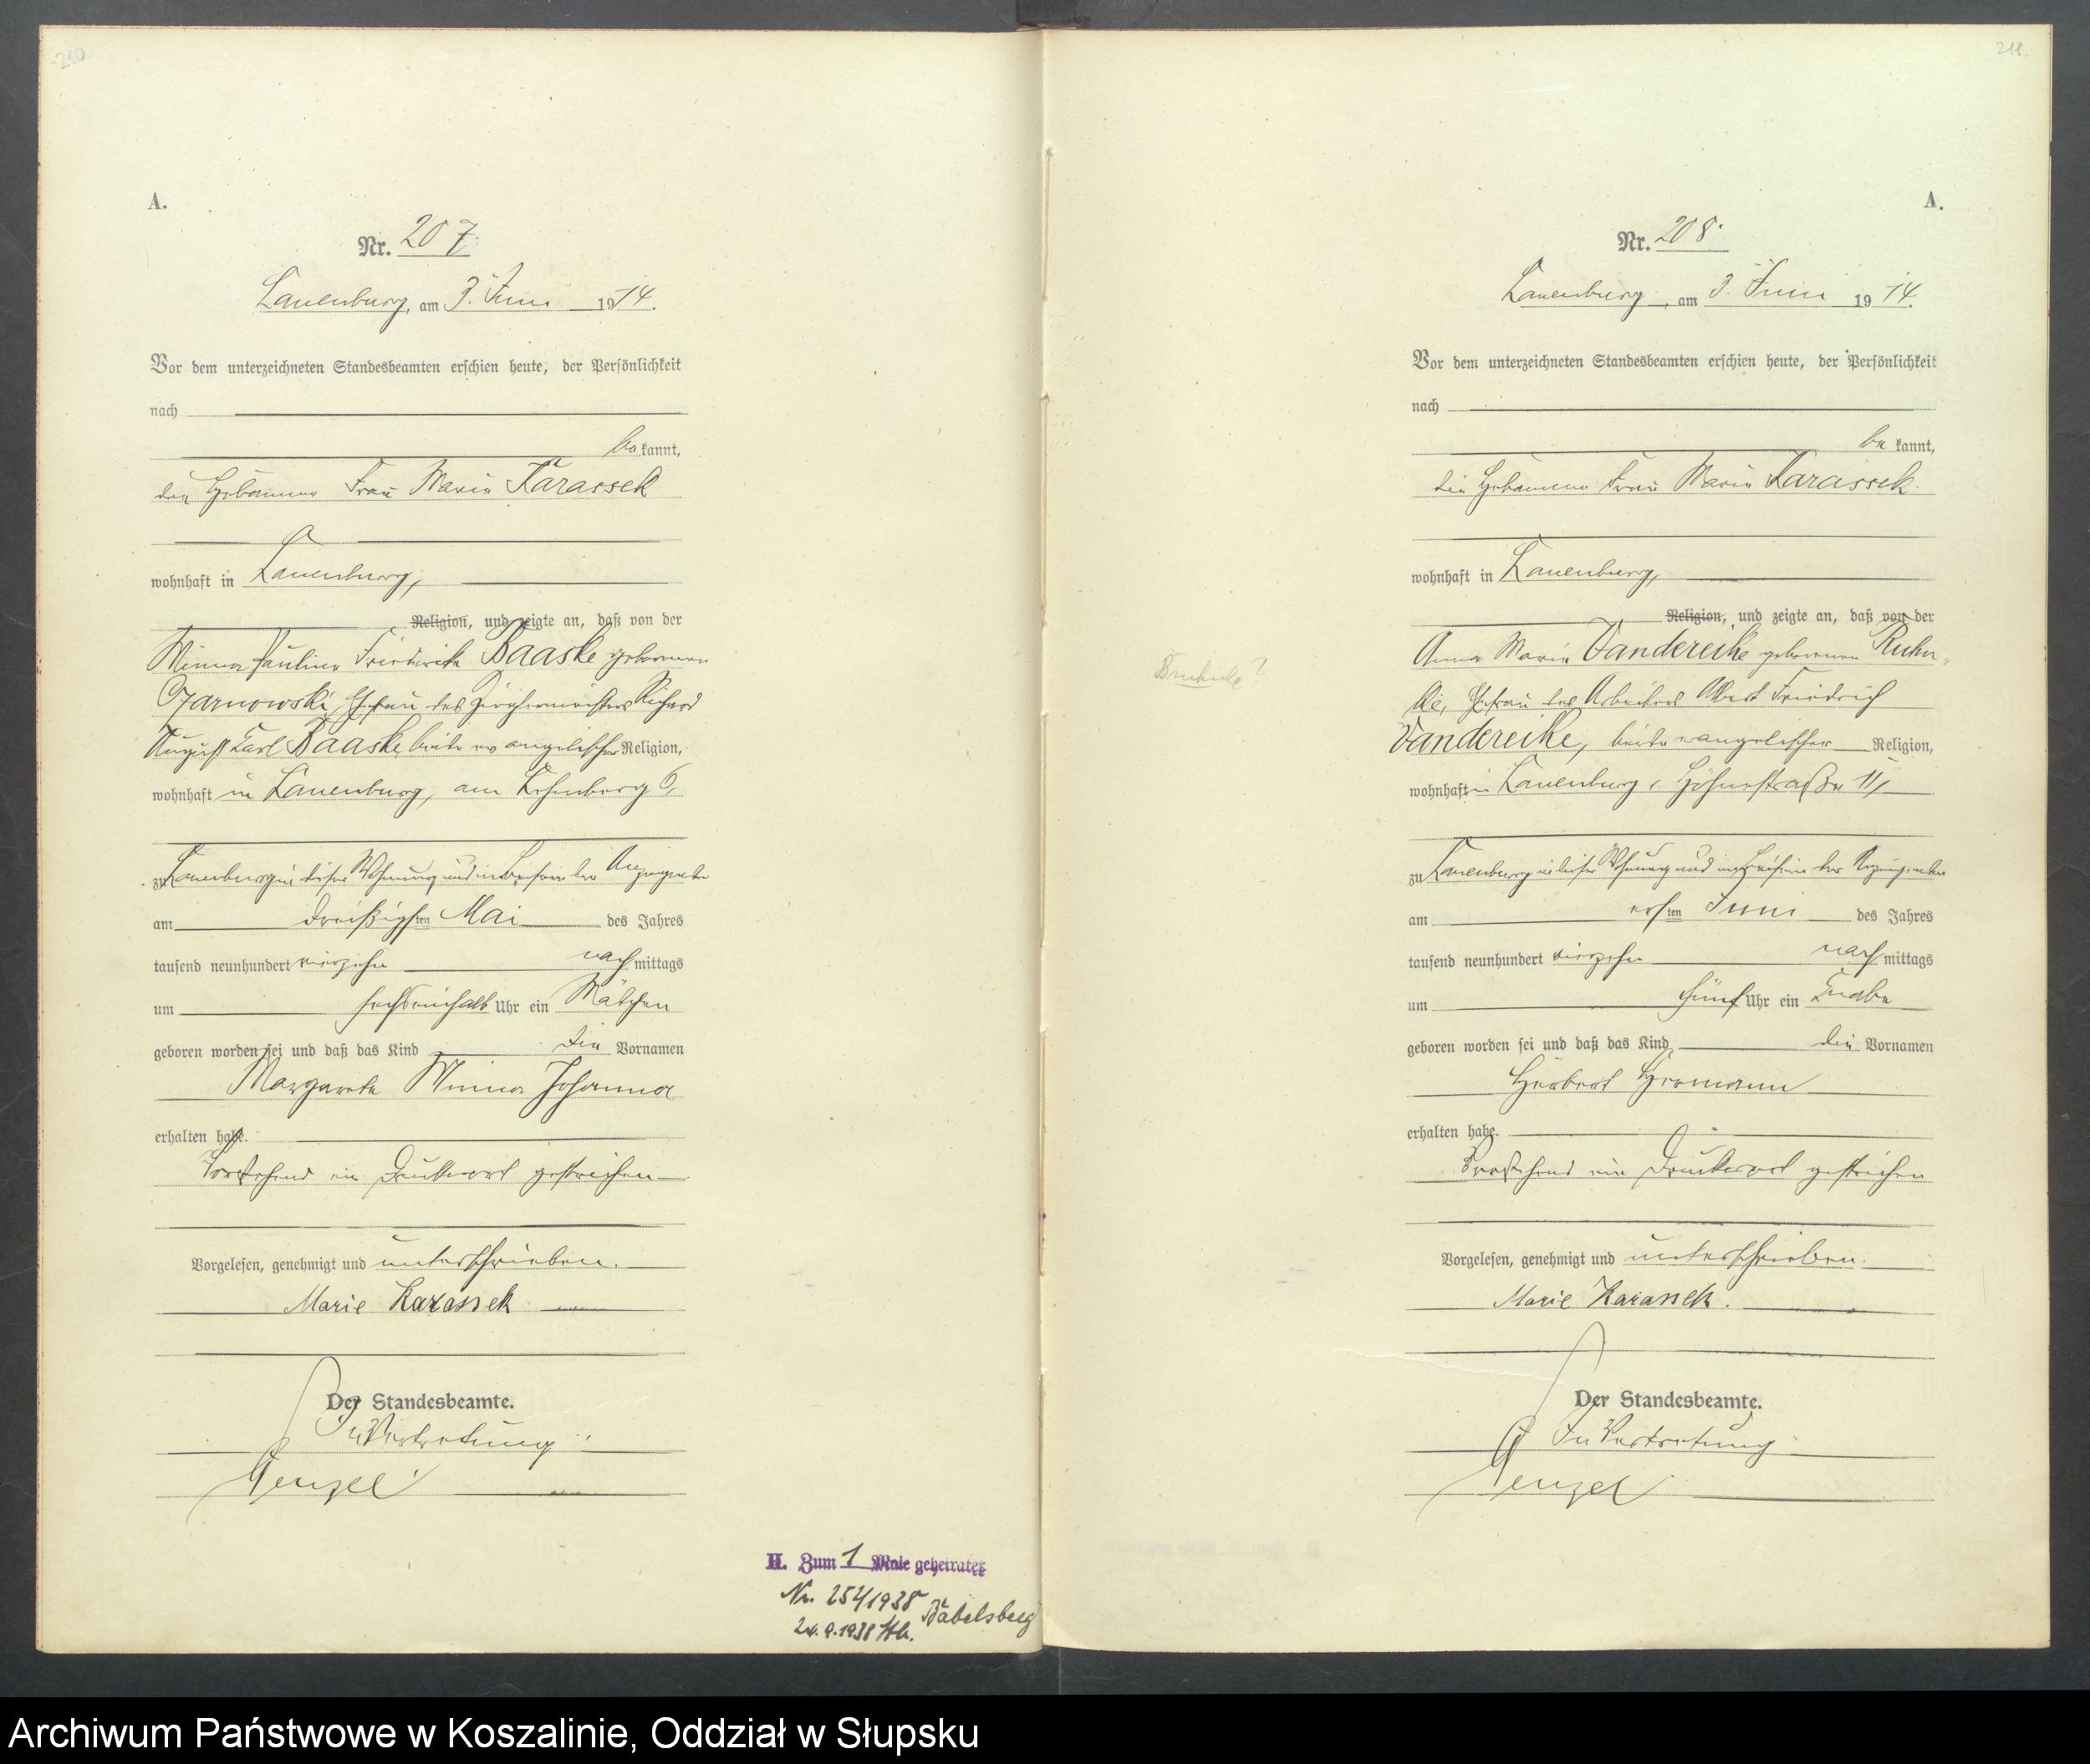 210.
A.
Nr. 207.
Lauenburg, am 3. Juni 1914.
Vor dem unterzeichneten Standesbeamten erschien heute, der Persönlichkeit
nach
bekannt,
die Hebamme Frau Marie Karassek
wohnhaft in Lauenburg,
Religion, und zeigte an, daß von der
Minna Pauline Friederike Baaske geborenen
Czarnowski, Ehefrau des Richard
August Karl Baaske, beide evangelischer Religion,
wohnhaft in Lauenburg, am 6,
zu Lauenburg in dieser Wohnung und in Beisein der Anzeigenden
am dreißigsten Mai des Jahres
tausend neunhundert vierzehn nachmittags
um sechseinhalb Uhr ein Mädchen
geboren worden sei und daß das Kind die Vornamen
Margarete Minna Johanna
erhalten habe.
Vorstehend ein Druckwort gestrichen
Vorgelesen, genehmigt und unterschrieben.
Marie Karassek
Der Standesbeamte.
In Vertretung:
H. Zum 1 Male geheiratet
Nr. 254/1938 Babelsberg
24.9.1938
211.
A.
Nr. 208.
Lauenburg, am 3. Juni 1914.
Vor dem unterzeichneten Standesbeamten erschien heute, der Persönlichkeit
nach
bekannt,
die Hebamme Frau Marie Karassek
wohnhaft in Lauenburg,
Religion, und zeigte an, daß von der
Anna Marie Vandereike geborenen Ruhn-
ke, Ehefrau des Arbeiters Albert Friedrich
Vandereike, beide evangelischer Religion,
wohnhaft in Lauenburg, Höhnestraße 11,
zu Lauenburg in dieser Wohnung und in Beisein der Anzeigenden
am ersten Juni des Jahres
tausend neunhundert vierzehn nachmittags
um fünf Uhr ein Knabe
geboren worden sei und daß das Kind die Vornamen
Herbert Hermann
erhalten habe.
Vorstehend ein Druckwort gestrichen
Vorgelesen, genehmigt und unterschrieben.
Marie Karassek.
Der Standesbeamte.
In Vertretung:
Archiwum Państwowe w Koszalinie, Oddział w Słupsku